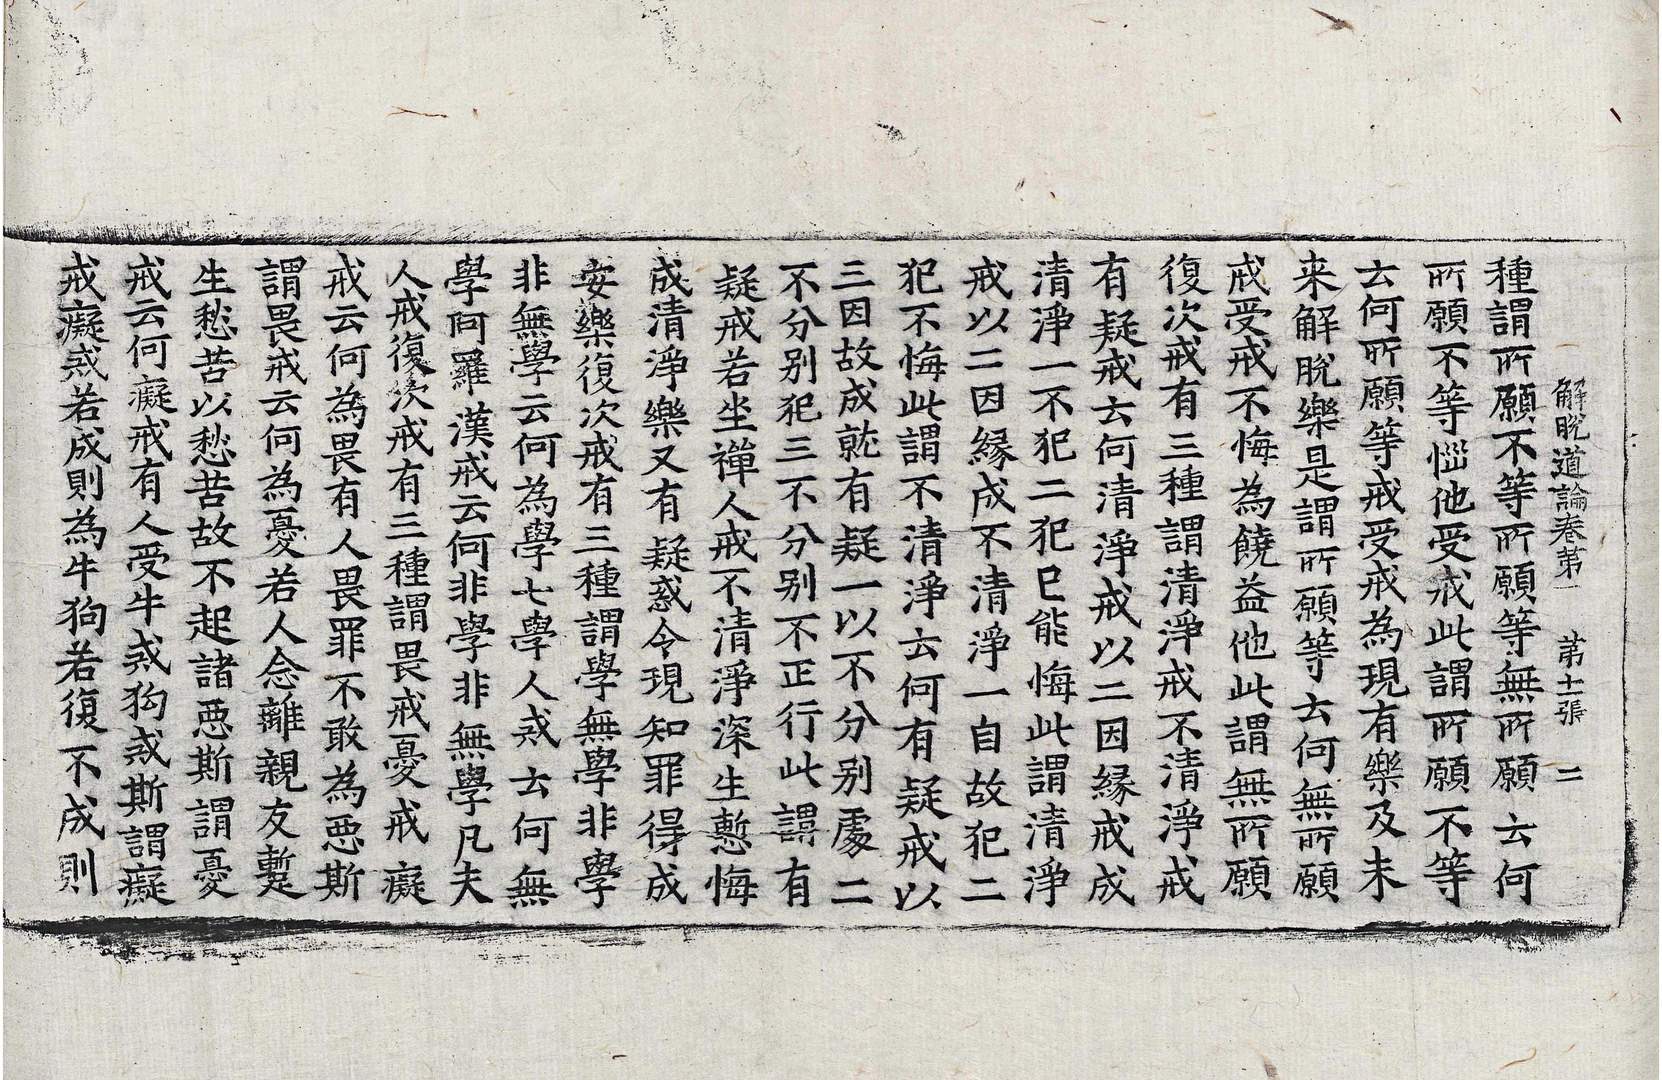 解脫道論卷第一　第十一張　二
種謂所願不等所願等無所願云何
所願不等惱他受戒此謂所願不等
云何所願等戒受戒為現有樂及未
来解脫樂是謂所願等云何無所願
戒受戒不悔為饒益他此謂無所願
復次戒有三種謂清淨戒不清淨戒
有疑戒云何清淨戒以二因縁戒成
清淨一不犯二犯已能悔此謂清淨
戒以二因縁成不清淨一自故犯二
犯不悔此謂不清淨云何有疑戒以
三因故成就有疑一以不分別處二
不分別犯三不分別不正行此謂有
疑戒若坐禪人戒不清淨深生慙悔
成清淨樂又有疑惑令現知罪得成
安樂復次戒有三種謂學無學非學
非無學云何為學七學人戒云何無
學阿羅漢戒云何非學非無學凡夫
人戒復次戒有三種謂畏戒憂戒癡
戒云何為畏有人畏罪不敢為惡斯
謂畏戒云何為憂若人念離親友蹔
生愁苦以愁苦故不起諸惡斯謂憂
戒云何癡戒有人受牛戒狗戒斯謂癡
戒癡戒若成則為牛狗若復不成則